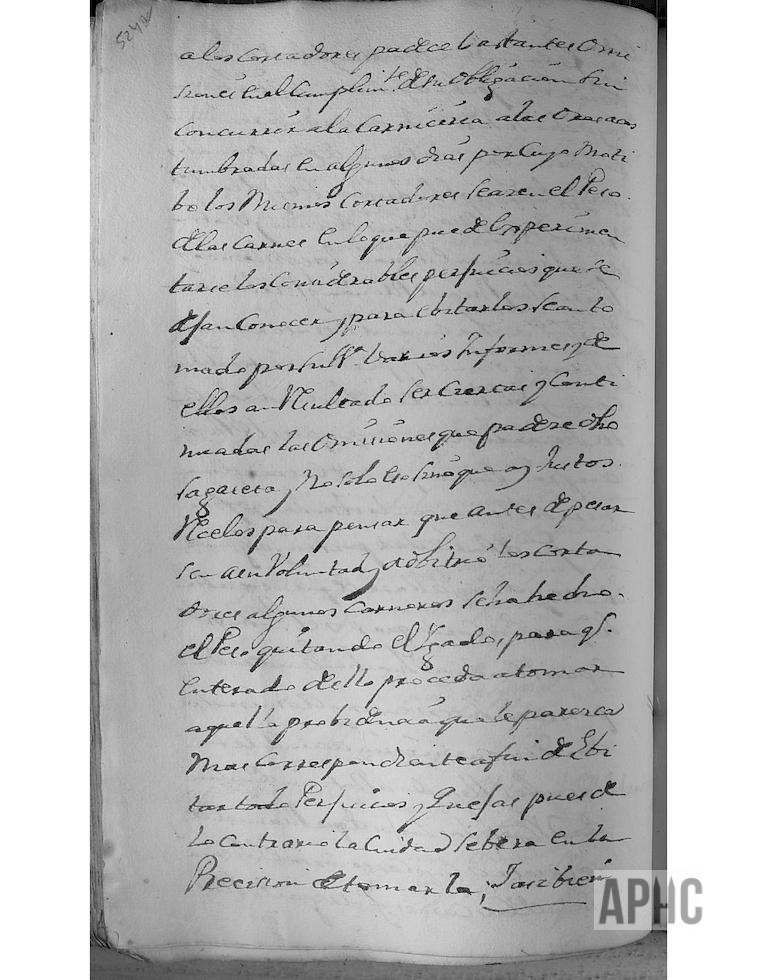 524 v
a los Cortadores padece bastantes Omi
siones en el Cumplim.to de su obligacion Sin
Concurrir a la Carniceria a las Oras acos
tumbradas en algunos dias por Cuyo Moti
bo los Mismos Cortadores Acen el Peso
de las Carnes en lo que puede Experimen
tarse los Considerables perjuicios que se
dejan Conocer y para ebitarlos se an to
mado por Su s.a barios Informes y de
ellos an Resultado Ser Ciertas y Conti
nuadas las Omisiones que padeze dho
y No solo eso Sino que ay Justos
Recelos para pensar que antes de pesar
se a su Voluntad y advitrio los corta
dores algunos Carneros se ha hecho
el Peso quitando el para q.e
enterado de ello proceda a tomar
aquella probidencia que le paresca
Mas Correspondiente a fin de Ebi
tar todo Perjuicio y Quejas pues de
lo contrario la Ciudad se bera en la
Precision de tomarla; Tanbien
APHC